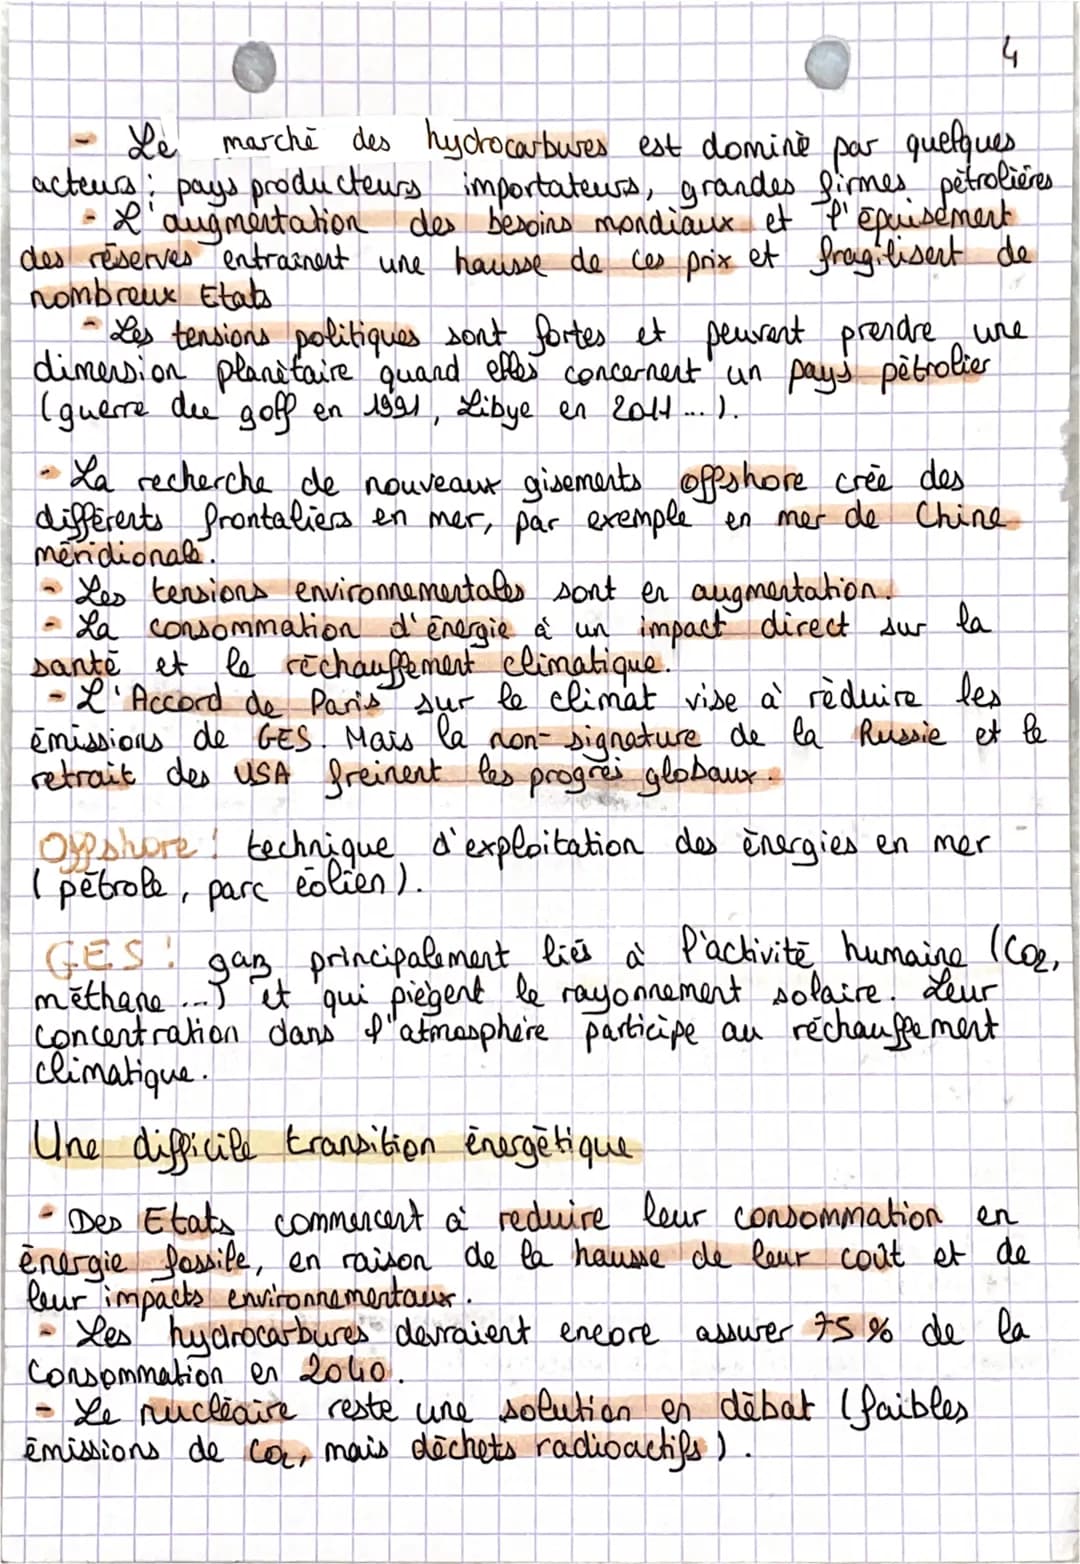 4
- Le marché des hydrocarbures est dominé par quelques
acteurs : pays producteurs importateurs, grandes firmes pétrolières
- L'augmentation des besoins mondiaux et l'épuisement
des réserves entrainent une hausse de ces prix et fragilisent de
nombreux Etats
- Les tensions politiques sont fortes et peuvent prendre une
dimension planétaire quand elles concernent un pays pétrolier
(guerre du golf en 1991, Libye en 2011 ... ).
- La recherche de nouveaux gisements offshore crée des
différents frontaliers en mer, par exemple en mer de Chine
méridionale.
- Les tensions environnementales sont en augmentation.
- La consommation d'énergie à un impact direct sur la
santé et le réchauffement climatique.
- L'Accord de Paris sur le climat vise à réduire les
émissions de GES. Mais la non-signature de la Russie et le
retrait des USA freinent les progrès globaux.
Offshore : technique d'exploitation des énergies en mer
(pétrole, parc éolien).
GES : gaz principalement liés à l'activité humaine (CO2,
méthane ...) et qui piègent le rayonnement solaire. Leur
concentration dans l'atmosphère participe au réchauffement
climatique.
Une difficile transition énergétique
- Des Etats commencent à reduire leur consommation en
énergie fossile, en raison de la hausse de leur coût et de
leur impacts environnementaux.
- Les hydrocarbures devraient encore assurer 75 % de la
consommation en 2040.
- Le nucléaire reste une solution en débat (faibles
émissions de CO2, mais déchets radioactifs).